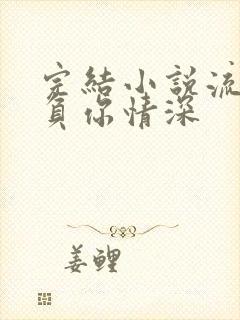 完結小說流
負你情深
姜鲤